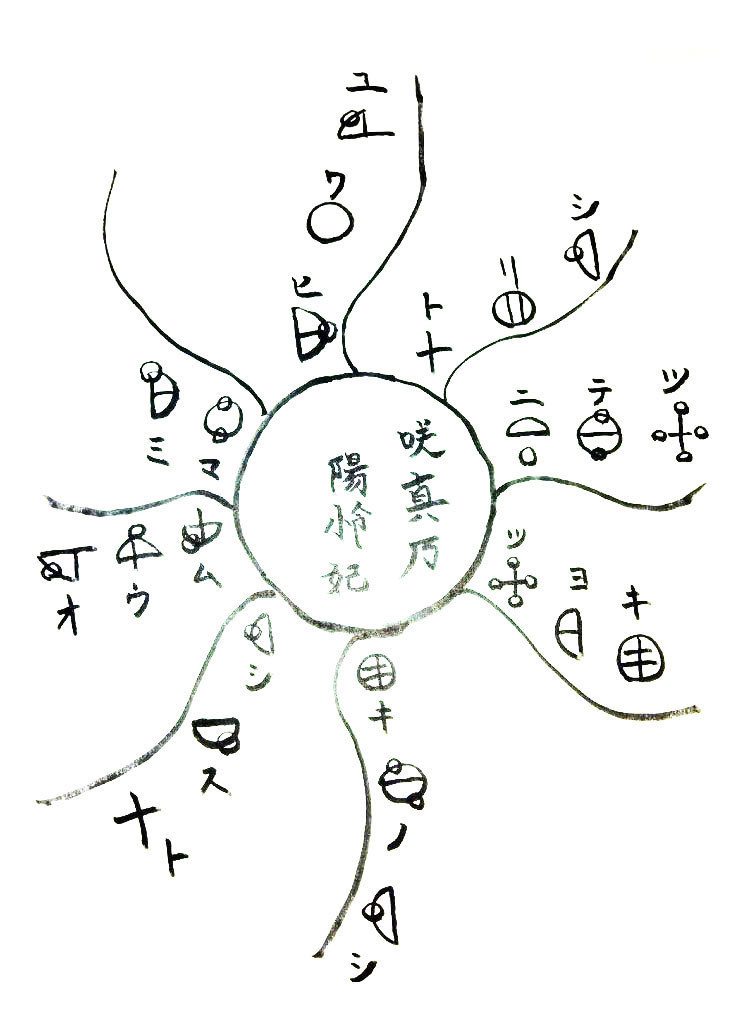 咲真乃
陽怜妃
ユワヒ
シリト
ツテニ
ツヨキ
キノシ
シスト
ムウオ
マミ